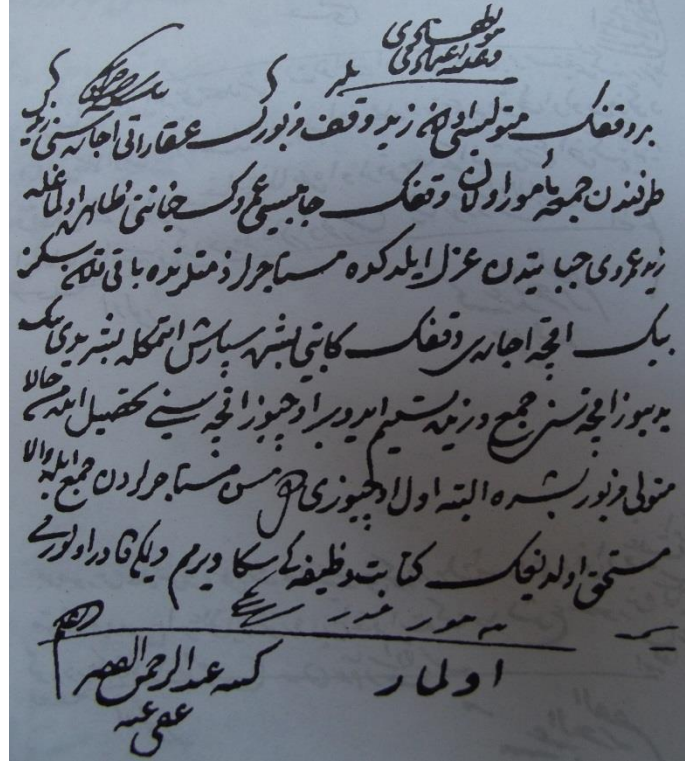 بر وقفك متوليسى اولان زيد وقف مزبورك عقاراتى اجاره سنى زيد
طرفندن جمعه مأمور اولان وقفك جابيسى عمروك خيانتى ظاهر اولماغله
زيد عمروى جبايتدن عزل ايلدكده مستأجرلر ذمتلرنده باقى قلان سكز
بيك اقچه اجاره يى وقفك كاتبى بشره سپارش ايتمكله بشر يدى بيك
يديوز اقچه سنى جمع و زيده تسليم ايدوب اوچيوز اقچه سينى تحصيل ايله مسه حالا
متولى مزبور بشره البته اول اوچيوزى مستأجرلردن جمع ايله والا
مستحق اولديغك كتابت وظيفه كى سكا ويرمم ديمكه قادر اولورمى
اولماز
كتبه عبد الرحمن الفقير
عفى عنه